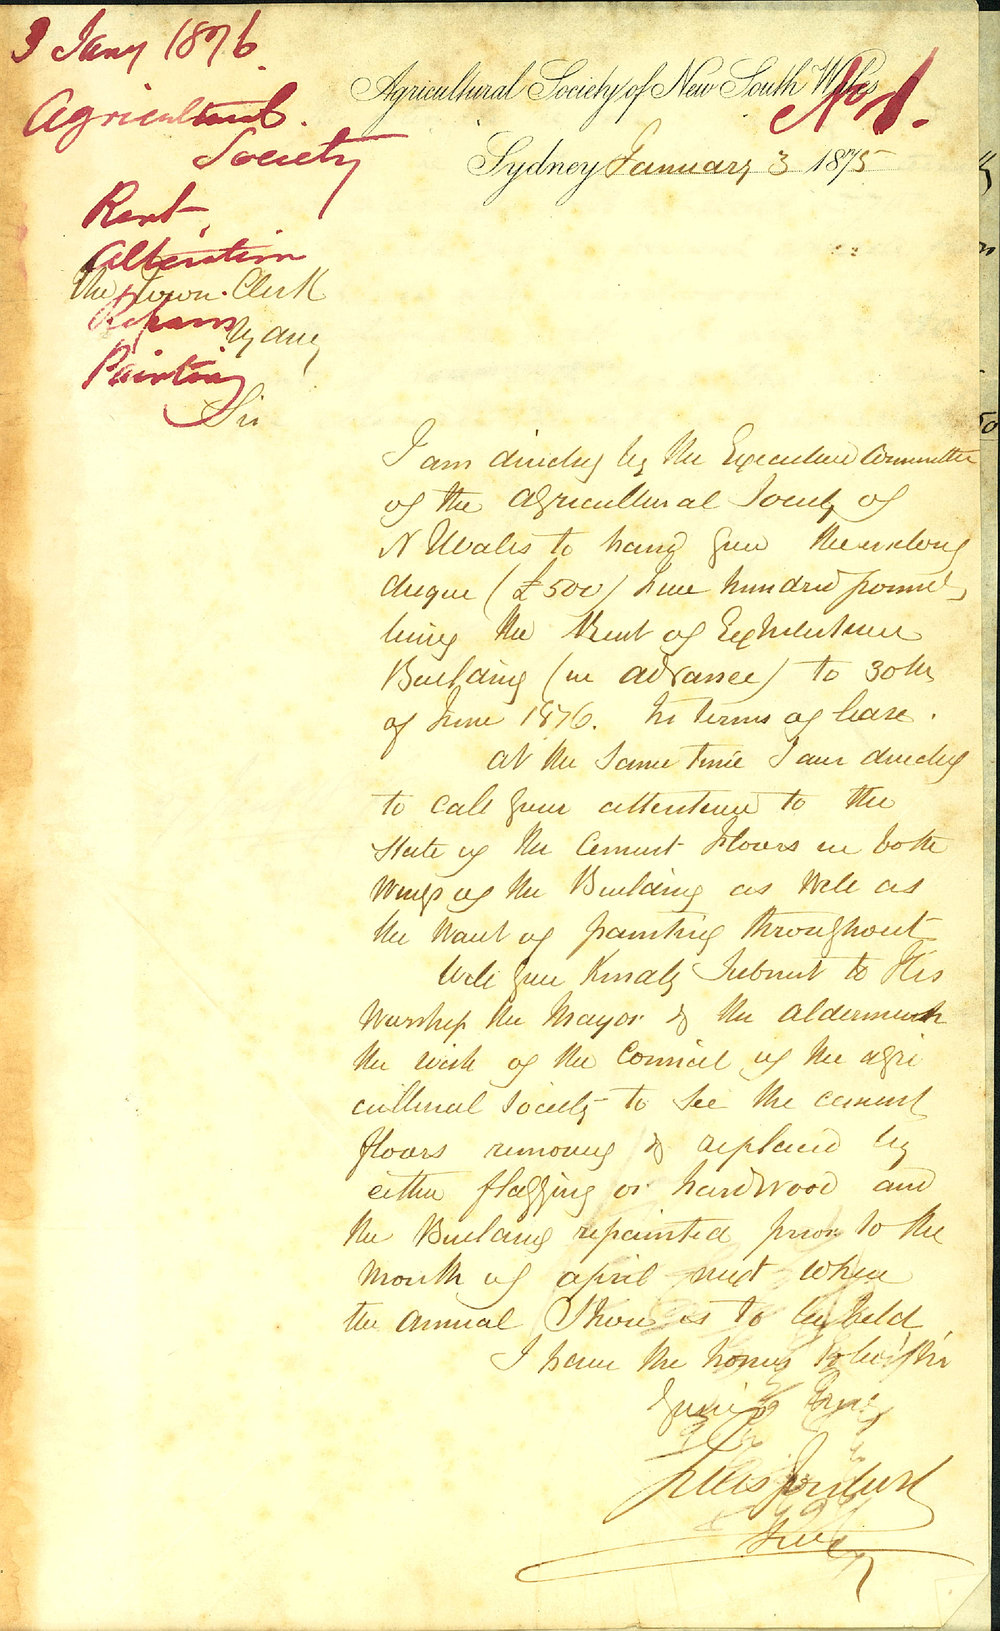 3 Jany 1876.
Agricultural
Society
Rent
Alteration
Repairs
Painting
No 1.
Agricultural Society of New South Wales
Sydney January 3 1875
The Town Clerk
Sydney
Sir
I am directed by the Executive Committee
of the Agricultural Society of
N S Wales to hand you the enclosed
cheque (£500) five hundred pounds,
being the Rent of Exhibition
Building (in advance) to 30th
of June 1876. in terms of lease.
At the same time I am directed
to call your attention to the
State of the Cement Floors in both
Wings of the Building as Well as
the Want of painting throughout
Will you Kindly Submit to His
Worship the Mayor & the Aldermen
the wish of the Council of the Agri
cultural Society to See the cement
floors removed & replaced by
either flagging or hardwood and
the Building repainted prior to the
Month of April next when
the Annual Show is to be held,
I have the honor to be, Sir
Jules Joubert
Secy